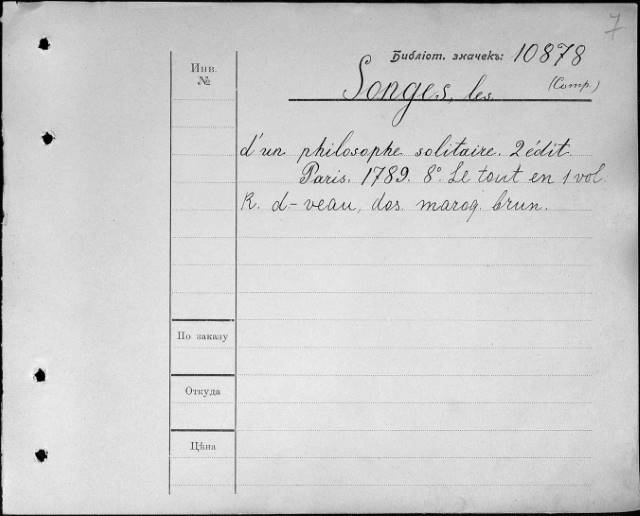 7
Библіот. значекъ: 10878
Инв.
№
Songes, les (Comp.)
d'un philosophe solitaire. 2 édit.
Paris. 1789. 8°. Le tout en 1 vol.
R. d-veau, dos. maroq. brun.
По заказу
Откуда
Цѣна